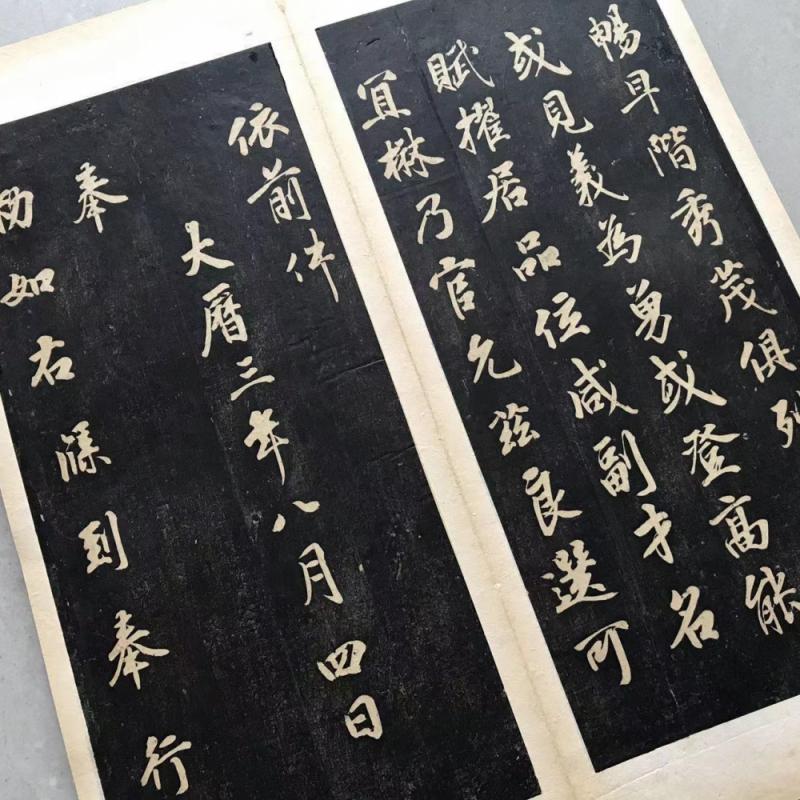 暢早階秀茂俱列
或見義為勇或登高能
賦擢居品位咸副才名
宜楙乃官允茲良選可
依前件
大曆三年八月四日
奉
勑如右牒到奉行